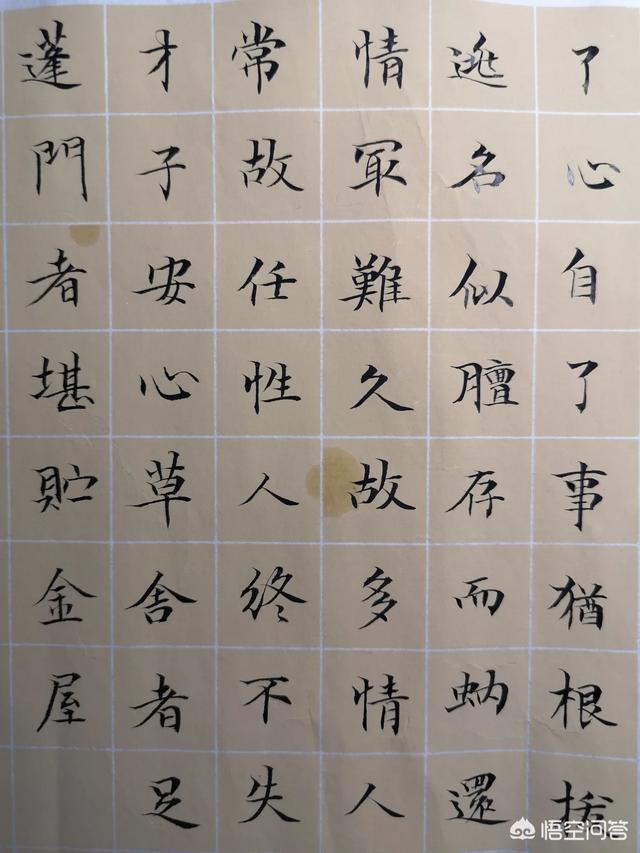 了心自了事猶根拔
逃名似膻存而蚋還
情冣難久故多情人
常故任性人終不失
才子安心草舍者足
蓬門者堪貯金屋
悟空问答